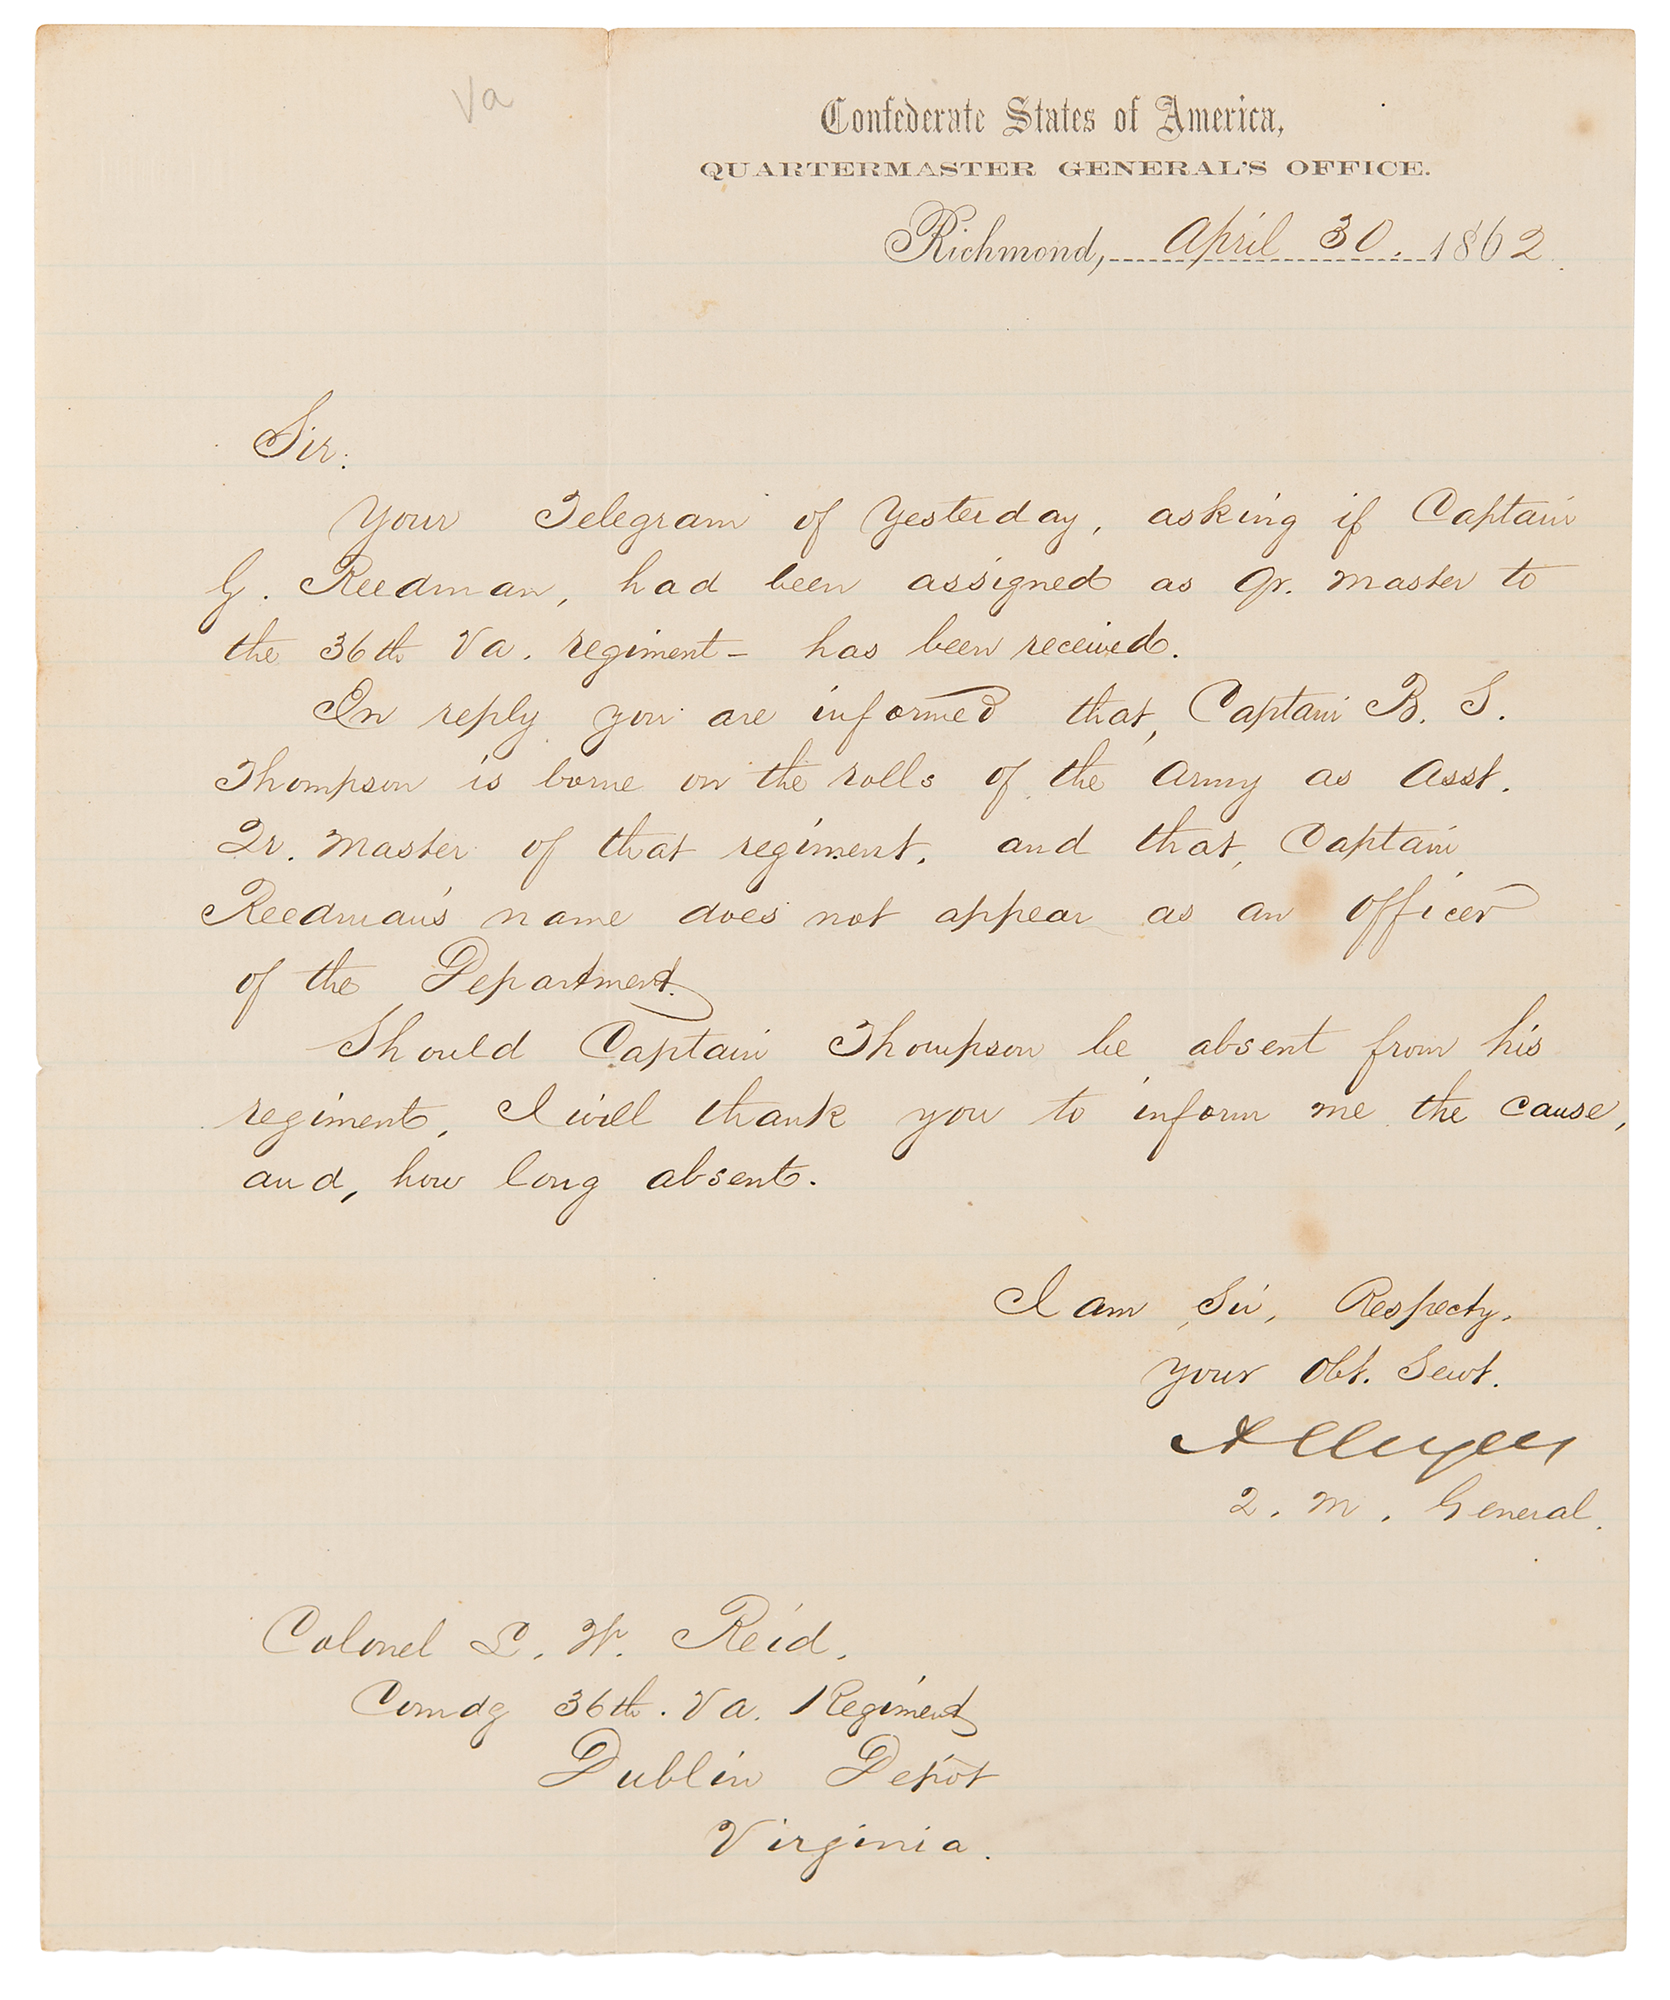 Va
Confederate States of America,
QUARTERMASTER GENERAL'S OFFICE.
Richmond, April 30. 1862.
Sir:
Your Telegram of Yesterday, asking if Captain
G. Reedman, had been assigned as Qr. Master to
the 36th Va. regiment - has been received.
In reply you are informed that, Captain B. S.
Thompson is borne on the rolls of the Army as Asst.
Qr. Master of that regiment, and that, Captain
Reedman's name does not appear as an Officer
of the Department.
Should Captain Thompson be absent from his
regiment, I will thank you to inform me the cause,
and, how long absent.
I am Sir, Respecty,
your Obt. Servt.
A C Myers
Q. M. General.
Colonel L. W. Reid,
Comdg 36th. Va. Regiment
Dublin Depot
Virginia.